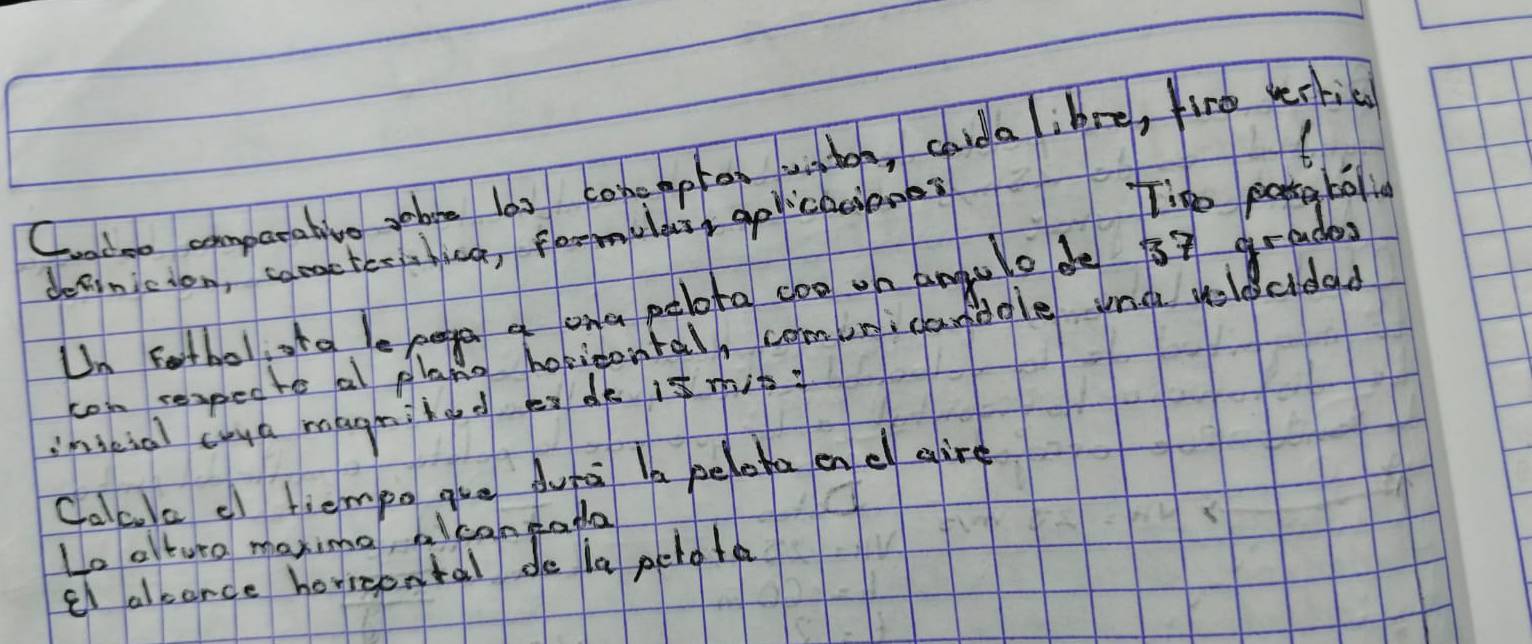 Cuadro comparativo sobre los conceptos vistos, caida libre, tiro vertical
definicion, caracteristica, formulas, aplicaciones Tiro parabólico
Un fotbolista le pega a una pelota con un angulo de 37 grados
con respecto al plano horizontal, comunicandole una velocidad
inicial cuya magnitud es de 15 m/s:
Calcula el tiempo que dura la pelota en el aire
La altura maxima alcanzada
El alcance horizontal de la pelota